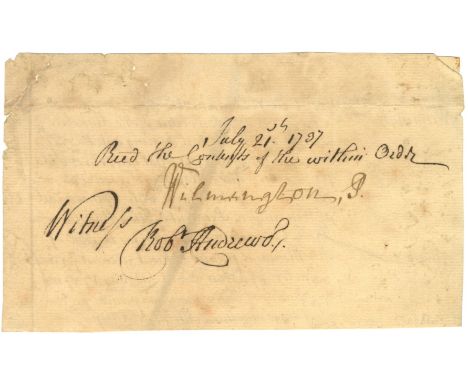 July 21.th 1737
Recd the Contents of the within Order
Wilmington, P.
Witness
Robt. Andrews.